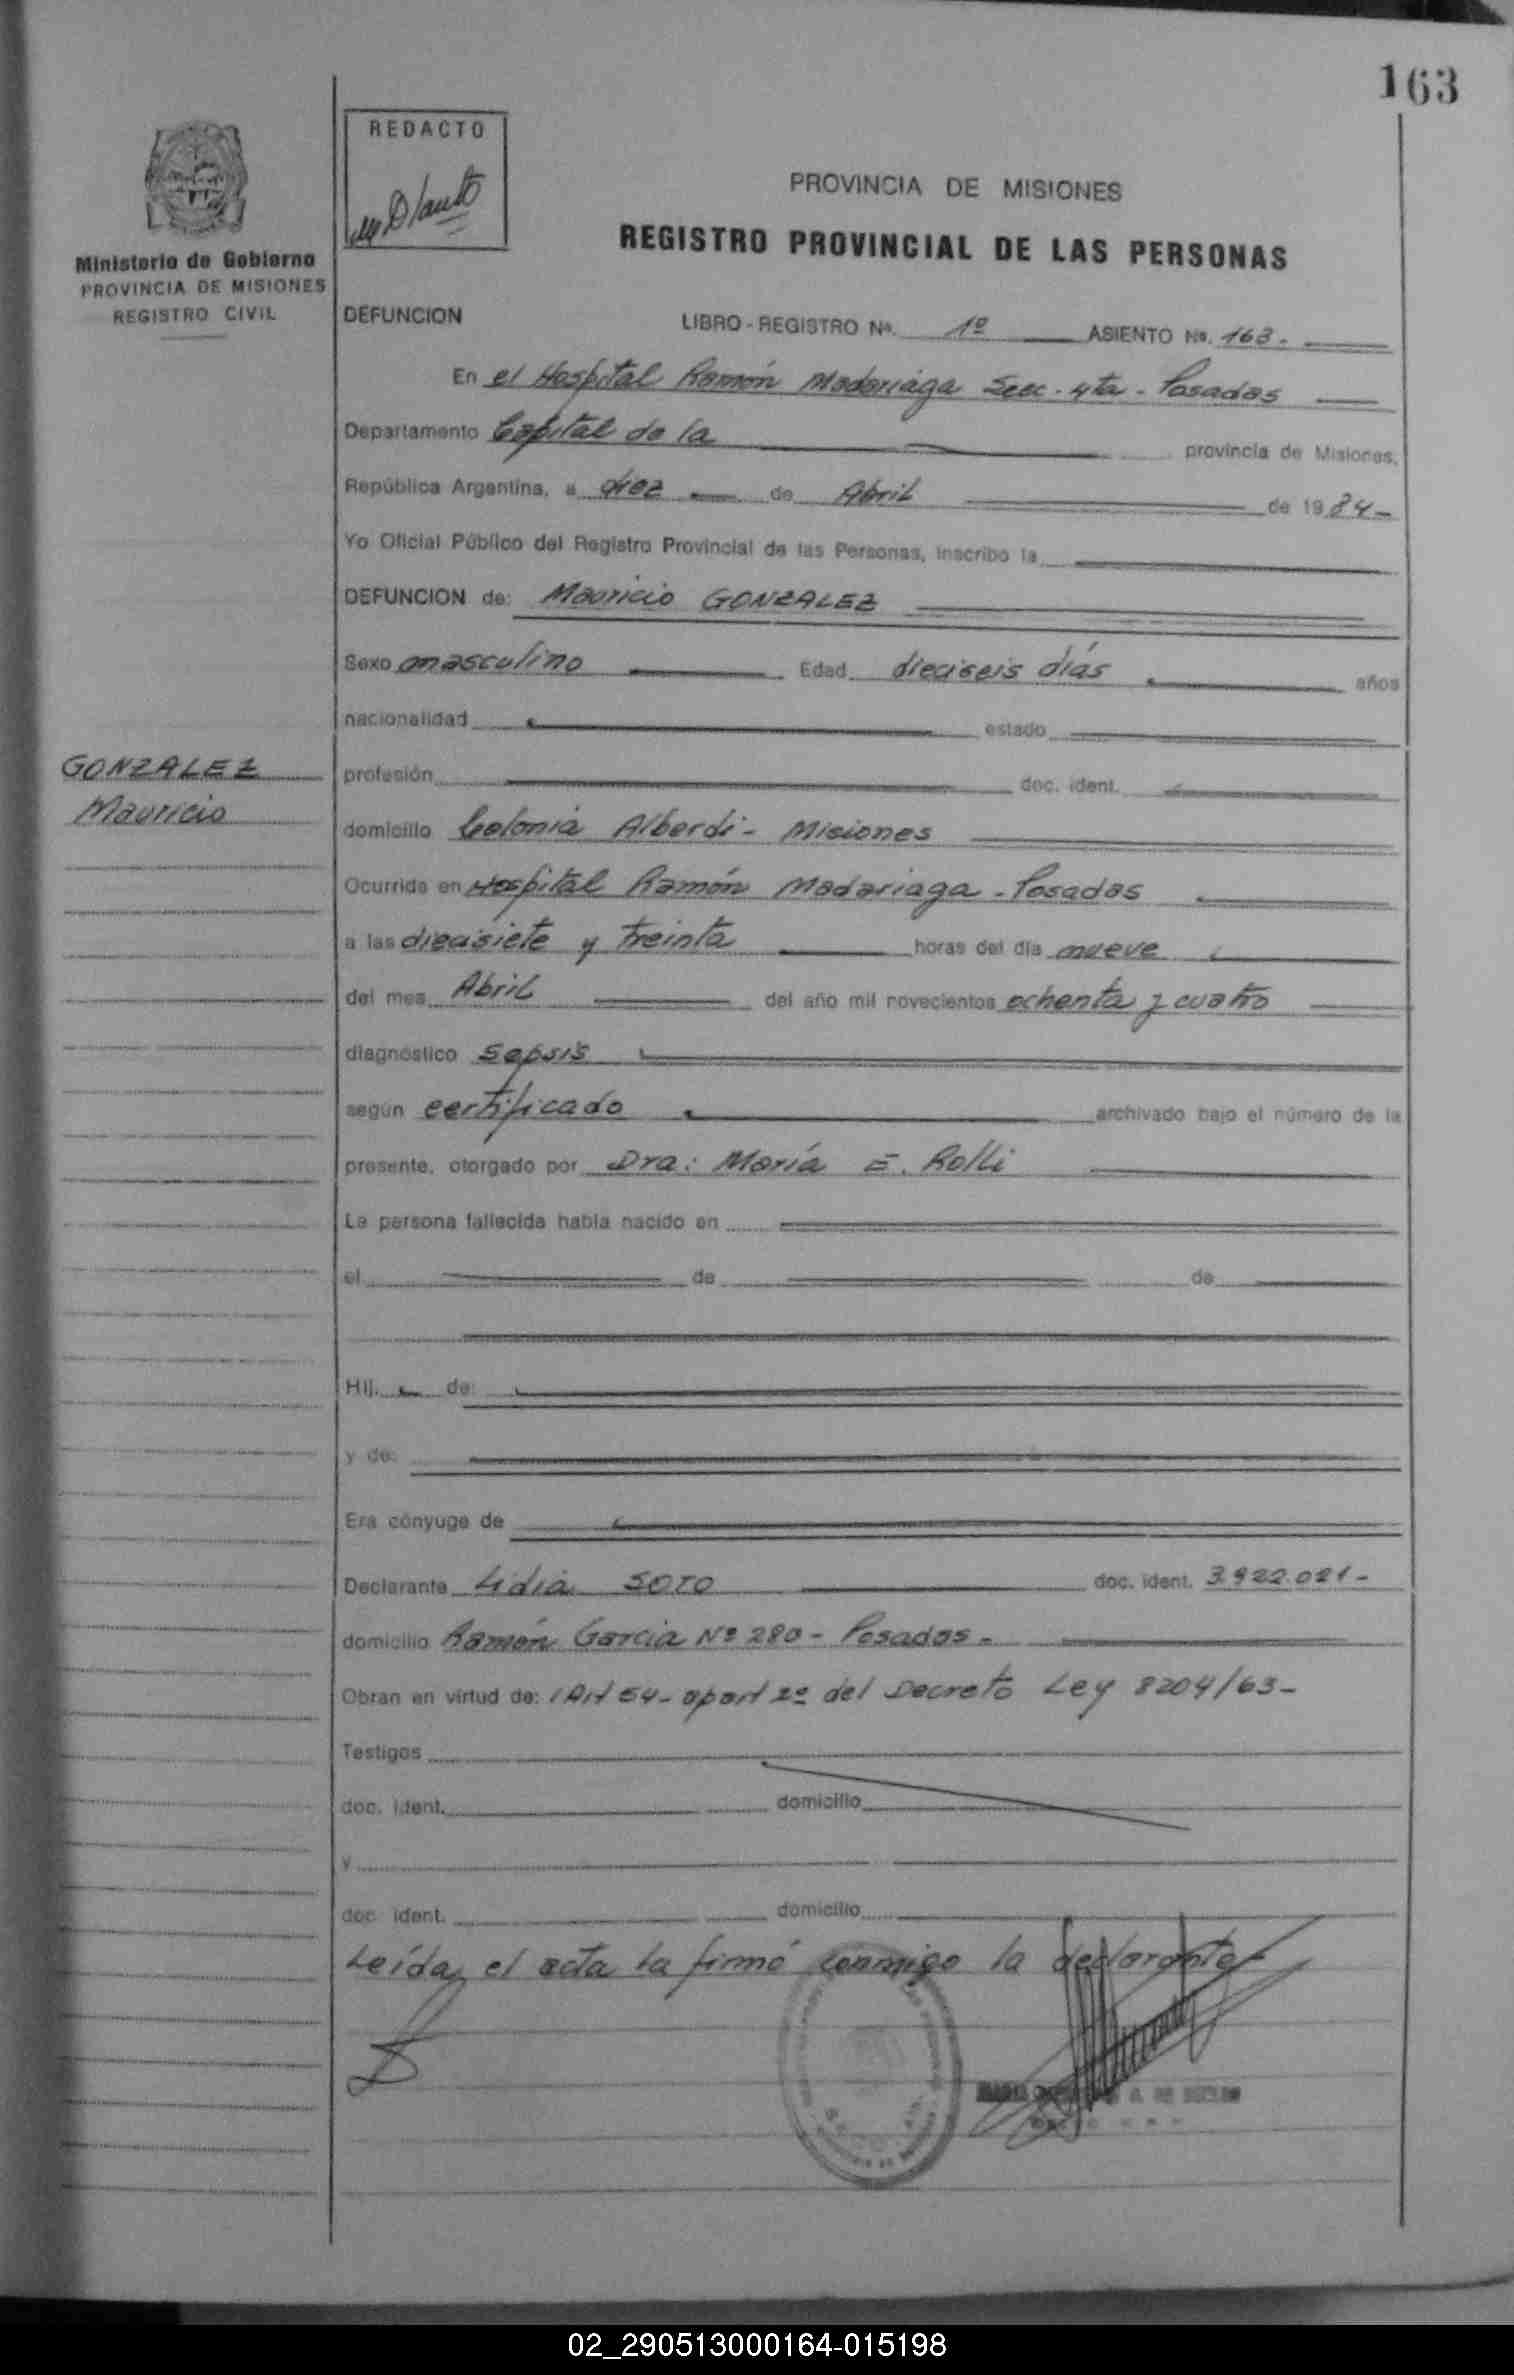 163
REDACTO
Ministerio de Gobierno
PROVINCIA DE MISIONES
REGISTRO CIVIL
PROVINCIA DE MISIONES
REGISTRO PROVINCIAL DE LAS PERSONAS
DEFUNCION LIBRO-REGISTRO Nº. 1º ASIENTO Nº. 163.-
En el Hospital Ramón Madariaga Secc. 4ta - Posadas
Departamento Capital de la provincia de Misiones,
República Argentina, a diez de Abril de 1984-
Yo Oficial Público del Registro Provincial de las Personas, inscribo la
DEFUNCION de: Mauricio GONZALEZ
Sexo masculino Edad dieciseis días años
nacionalidad estado
GONZALEZ
Mauricio
profesión doc. ident.
domicilio Colonia Alberdi - Misiones
Ocurrida en Hospital Ramón Madariaga - Posadas
a las diecisiete y treinta horas del día nueve
del mes Abril del año mil novecientos ochenta y cuatro
diagnóstico Sepsis
según certificado archivado bajo el número de la
presente, otorgado por Dra: María E. Rolli
La persona fallecida había nacido en
el de de
Hij. de:
y de:
Era cónyuge de
Declarante Lidia SOTO doc. ident. 3.922.021-
domicilio Ramón Garcia Nº 280 - Posadas-
Obran en virtud de: Art 54- apart 2º del Decreto Ley 8204/63-
Testigos
doc. ident. domicilio
y
doc. ident. domicilio
Leída el acta la firmó conmigo la declarante-
02_290513000164-015198